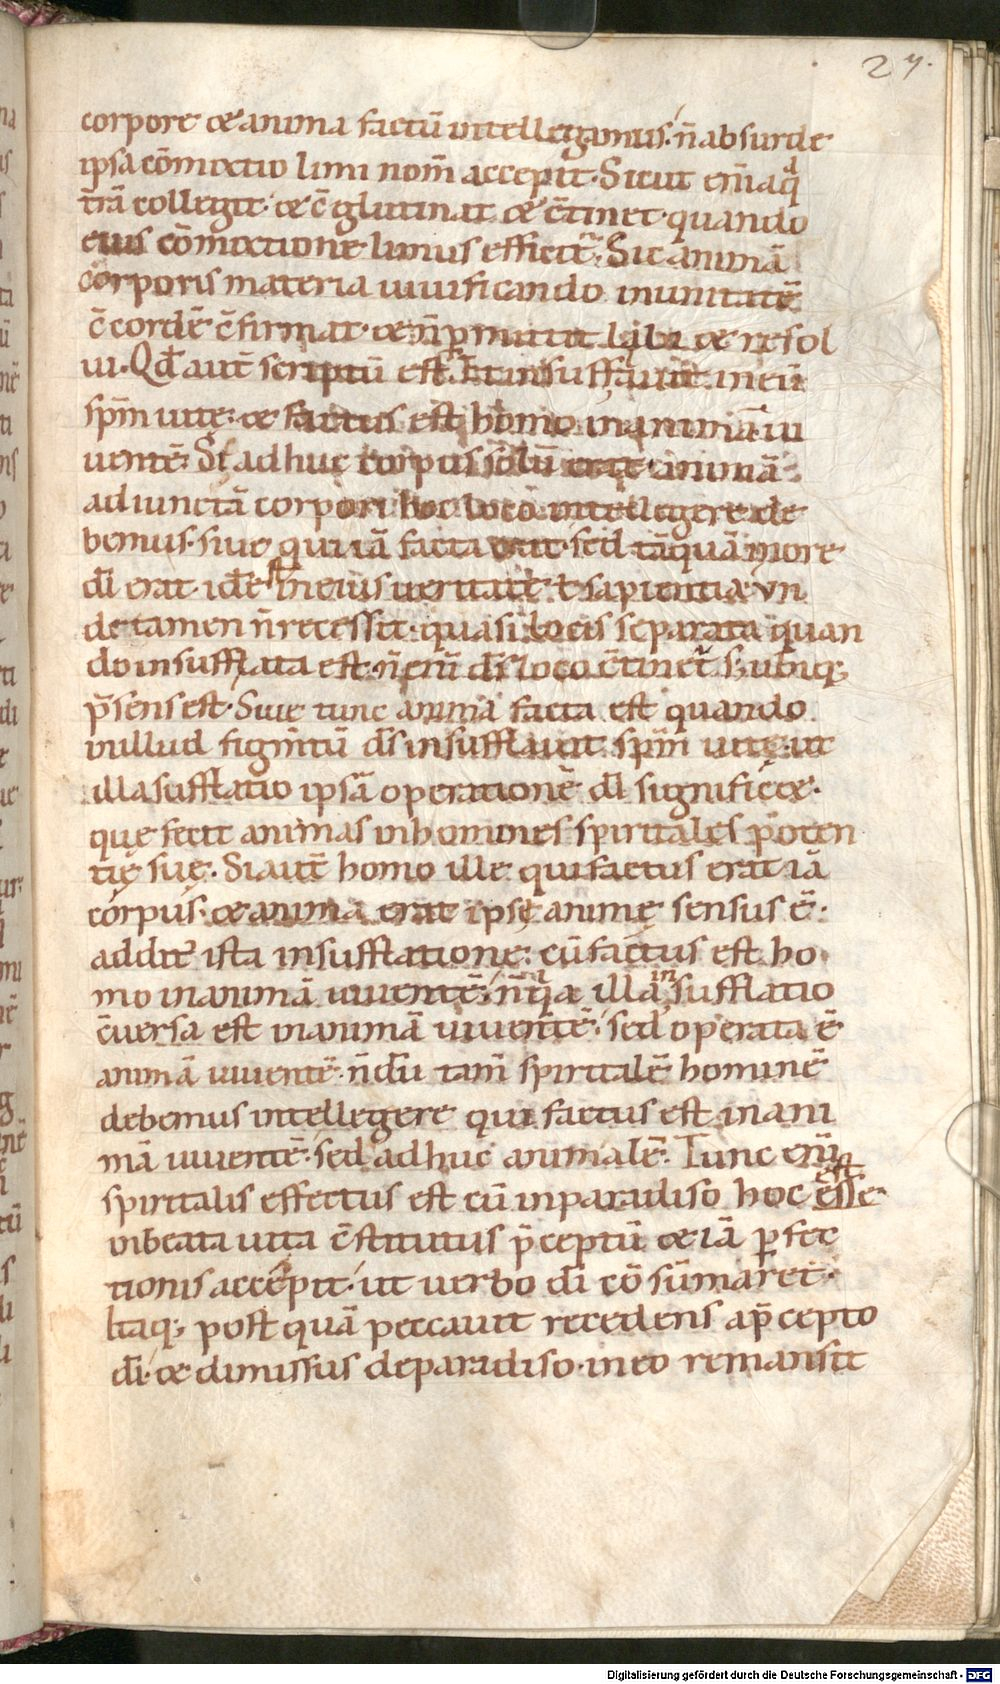 27.
corpore & anima factū intellegamus. n̄ absurde
ipsa cōmixtio limi nom̄ accepit. Sicut eni͞ aq̄
t̄rā collegit. & c̄glutinat & c̄tinet. quando
eius cōmixtione limus efficit᷑. Sic animā
corporis materia uiuificando inunitatē
c̄cordē c̄firmat. & n̄ p̱mittit labi & resol
ui. Qd̄ aut̄ scriptū est. Et insufflauit ineū
sp̄m uitę. & factus est homo inanimā ui
uentē. Si adhuc corpus solū erat. animā
adiunctā corpori hoc loco intellegere de
bemus. siue qui iā facta erat. sed tāquā inore
dī erat. id ē ineius ueritate. ł sapientia. vn
de tamen n̄recessit. quasi locis separata quan
do insufflata est. n̄ enī ds̄ loco c̄tinet᷑. s; ubiq;
p̄sens est. Siue tunc anima facta est quando
inillud figm̄tū ds̄ insufflauit sp̄m uitę. ut
illa sufflatio ipsā operationē dī significet.
que fecit animas inhomines spiritales poten
tię suę. Si aut̄ homo ille quifactus erat iā
corpus. & anima erat ipsę animę sensus ē.
additꝰ ista insufflatione. cū factus est ho
mo inanimā uiuentē. n̄ qia illa insufflatio
c̄uersa est inanimā uiuentē. sed operata ē
animā uiuentē. n̄dū tam̄ spiritalē hominē
debemus intellegere qui factus est inani
mā uiuentē. sed adhuc animalē. Tunc enī
spiritalis effectus est cū inparadiso hoc est esse
inbeata uita c̄stitutus p̄ceptū & iā p̱fec
tionis accepit. ut uerbo dī cōsūmaret᷑.
Itaq; postquā peccauit recedens ap̄cepto
dī. & dimissus deparadiso. ineo remansit
Digitalisierung gefördert durch die Deutsche Forschungsgemeinschaft - DFG